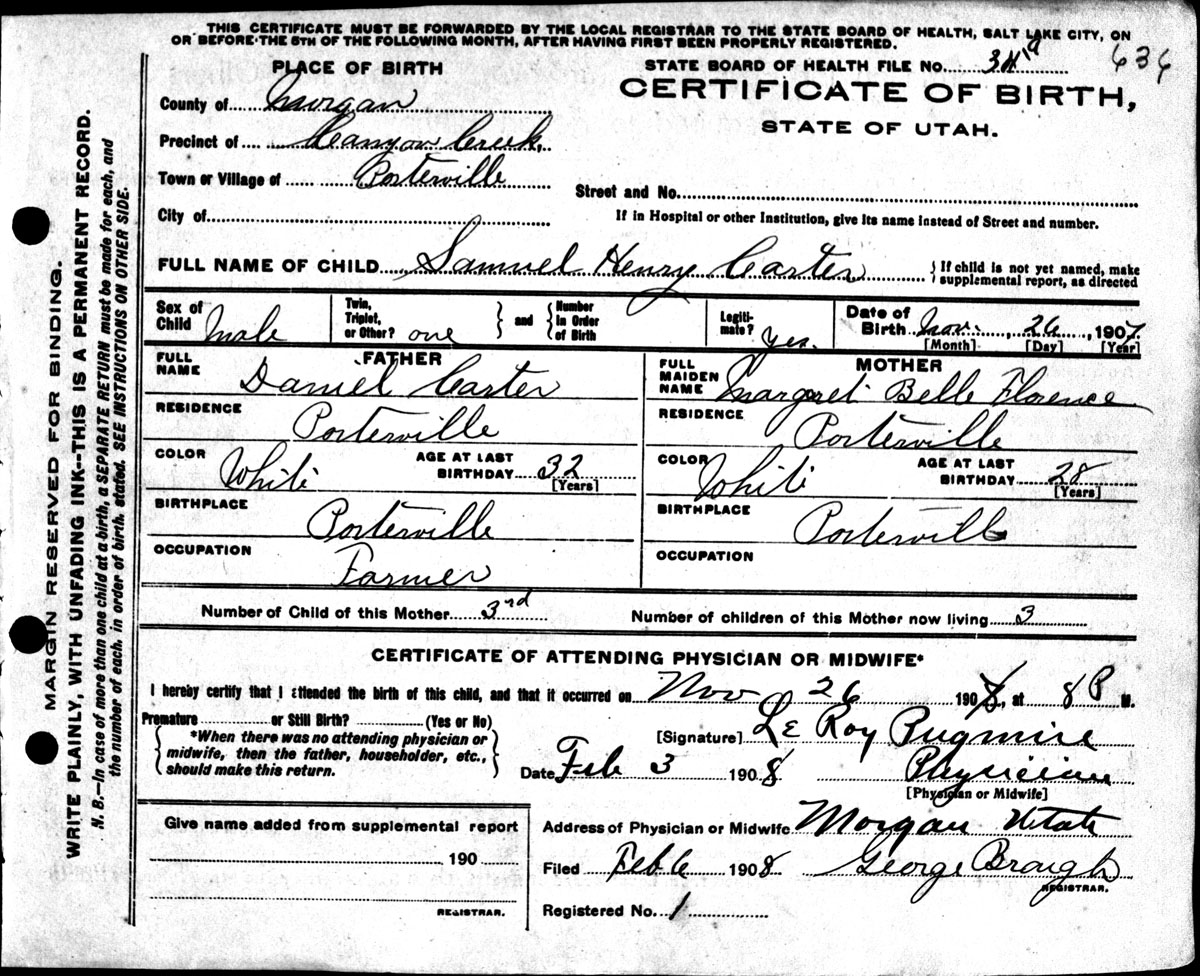 THIS CERTIFICATE MUST BE FORWARDED BY THE LOCAL REGISTRAR TO THE STATE BOARD OF HEALTH, SALT LAKE CITY, ON
OR BEFORE THE 5TH OF THE FOLLOWING MONTH, AFTER HAVING FIRST BEEN PROPERLY REGISTERED.
PLACE OF BIRTH
STATE BOARD OF HEALTH FILE No.
636
County of Morgan
CERTIFICATE OF BIRTH,
STATE OF UTAH.
Precinct of Canyon Creek,
Town or Village of Porterville
Street and No.
City of
If in Hospital or other Institution, give its name instead of Street and number.
FULL NAME OF CHILD Samuel Henry Carter
If child is not yet named, make
supplemental report, as directed
Sex of Child Male
Twin, Triplet, or Other? one
and
Number in Order of Birth
Legitimate? Yes.
Date of Birth Nov. 26, 1907
[Month] [Day] [Year]
FATHER
FULL NAME Daniel Carter
RESIDENCE Porterville
COLOR White AGE AT LAST BIRTHDAY 32
[Years]
BIRTHPLACE Porterville
OCCUPATION Farmer
MOTHER
FULL MAIDEN NAME Margaret Belle Florence
RESIDENCE Porterville
COLOR White AGE AT LAST BIRTHDAY 28
[Years]
BIRTHPLACE Porterville
OCCUPATION
Number of Child of this Mother 3rd Number of children of this Mother now living 3
CERTIFICATE OF ATTENDING PHYSICIAN OR MIDWIFE*
I hereby certify that I attended the birth of this child, and that it occurred on Nov 26 190 , at 8 P M.
Premature or Still Birth? (Yes or No)
*When there was no attending physician or
midwife, then the father, householder, etc.,
should make this return.
[Signature] Le Roy Pugmire
Date Feb 3 1908 Physician
[Physician or Midwife]
Give name added from supplemental report
190
REGISTRAR.
Address of Physician or Midwife Morgan Utah
Filed Feb 6 1908 George Brough
REGISTRAR.
Registered No. 1
MARGIN RESERVED FOR BINDING.
WRITE PLAINLY, WITH UNFADING INK--THIS IS A PERMANENT RECORD.
N. B.—In case of more than one child at a birth, a SEPARATE RETURN must be made for each, and
the number of each, in order of birth stated. SEE INSTRUCTIONS ON OTHER SIDE.